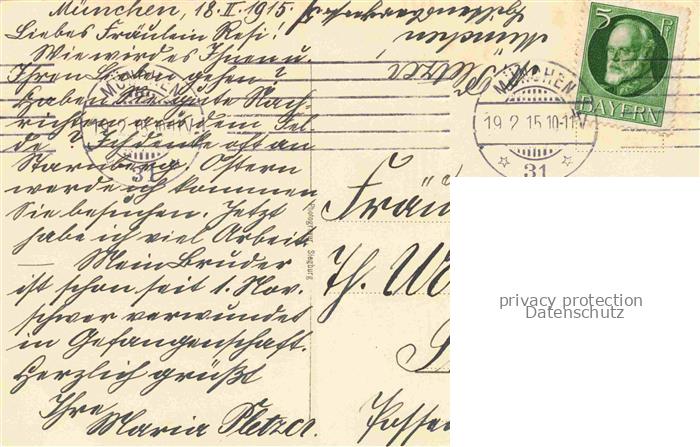 München, 18. II. 1915.
Liebes Fräulein Resi!
Wie wird es Ihnen u.
Ihren Lieben gehen?
Haben Sie gute Nach-
richten aus dem Fel-
de? Ich denke oft an
Starnberg. Ostern
werde ich kommen
Sie besuchen. Jetzt
habe ich viel Arbeit.
— Mein Bruder
ist schon seit 1. Nov.
schwer verwundet
in Gefangenschaft.
Herzlich grüßt
Ihre
Maria Pletzer.
Pletzer
München
MÜNCHEN
19.2.15.10-11V
31
MÜNCHEN
19.2.15.10-11V
31
5 Pf
BAYERN
Fräu
Th. W
Siegburg
privacy protection
Datenschutz